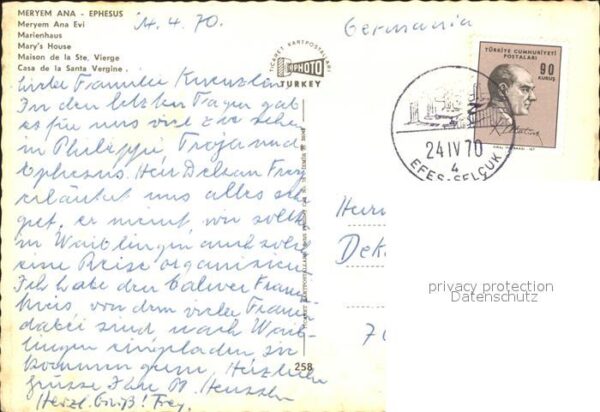 MERYEM ANA - EPHESUS
Meryem Ana Evi
Marienhaus
Mary's House
Maison de la Ste, Vierge
Casa de la Santa Vergine
24.4.70.
Germania
Liebe Familie
In den letzten Tagen gab
es für uns viel zu sehen
in Philippi Troja und
Ephesus. Herr Dekan
erläutert uns alles sehr
gut, er meint, wir sollten
in Waiblingen auch solch
eine Reise organisieren
Ich habe den Calwer
von dem viele Frauen
dabei sind nach Waib-
lingen eingeladen, sie
kommen gern, Herzliche
Grüsse Ihre M.
Herzl. Gruß! Frey.
TICARET KARTPOSTALLARI
PHOTO
TURKEY
258
TÜRKİYE CUMHURİYETİ
POSTALARI
90
KURUŞ
24 IV 70
4
EFES-SELÇUK
Herrn
Dek
7
privacy protection
Datenschutz